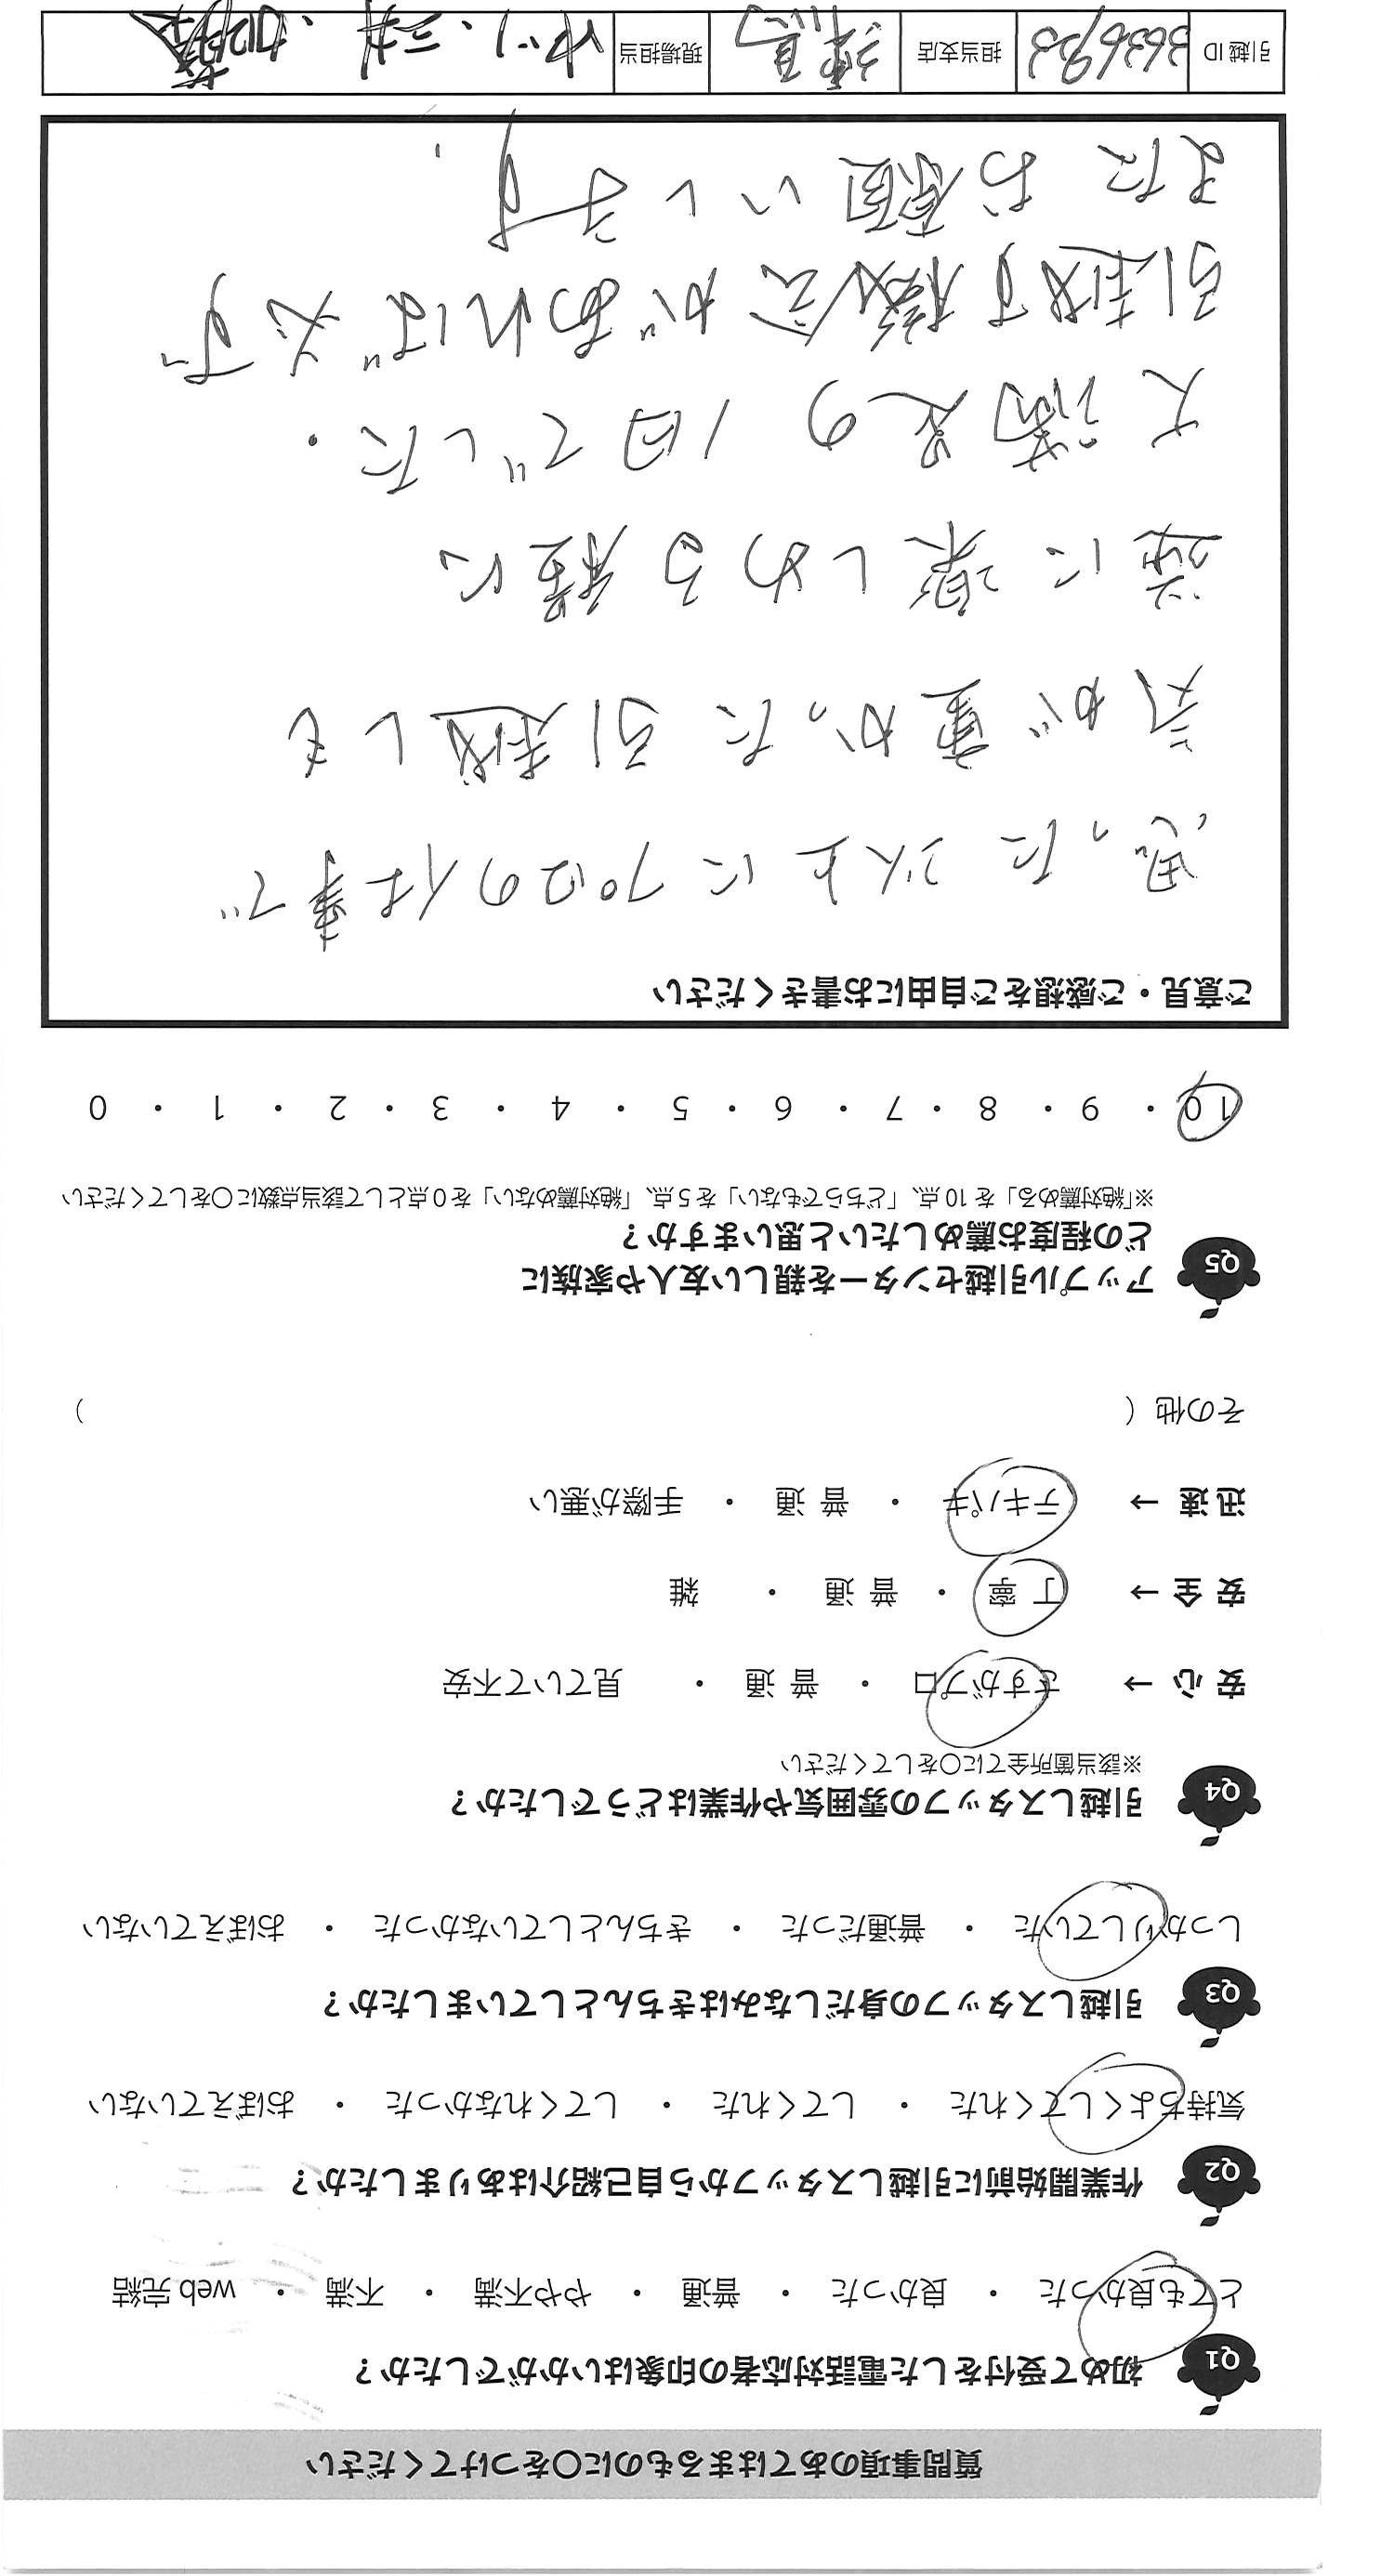 質問事項のあてはまるものに〇をつけてください
Q1 初めて受付をした電話対応者の印象はいかがでしたか？
とても良かった ・ 良かった ・ 普通 ・ やや不満 ・ 不満 ・ web 完結
Q2 作業開始前に引越しスタッフから自己紹介はありましたか？
気持ちよくしてくれた ・ してくれた ・ してくれなかった ・ おぼえていない
Q3 引越しスタッフの身だしなみはきちんとしていましたか？
しっかりしていた ・ 普通だった ・ きちんとしていなかった ・ おぼえていない
Q4 引越しスタッフの雰囲気や作業はどうでしたか？
※該当箇所全てに〇をしてください
安 心 → さすがプロ ・ 普 通 ・ 見ていて不安
安 全 → 丁 寧 ・ 普 通 ・ 雑
迅 速 → テキパキ ・ 普 通 ・ 手際が悪い
その他（ ）
Q5 アップル引越センターを親しい友人や家族に
どの程度お薦めしたいと思いますか？
※「絶対薦める」を 10 点、「どちらでもない」を 5 点、「絶対薦めない」を 0 点として該当点数に〇をしてください
10 ・ 9 ・ 8 ・ 7 ・ 6 ・ 5 ・ 4 ・ 3 ・ 2 ・ 1 ・ 0
ご意見・ご感想をご自由にお書きください
思った以上にプロの仕事で
気が重かった引越しも
逆に楽しめる程に
大満足の1日でした.
引越す機会があれば必ず
またお願いします.
引越 ID 担当支店 練馬 現場担当